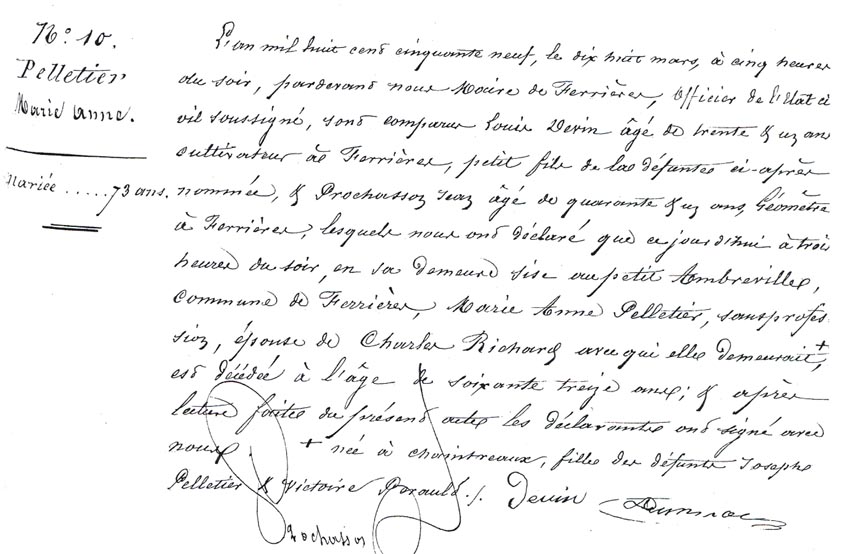 N.º 10.
Pelletier
Marie Anne.
Mariée ..... 73 ans.
L'an mil huit cent cinquante neuf, le dix huit mars, à cinq heures
du soir, pardevant nous Maire de Ferrières, Officier de l'Etat ci
vil soussigné, sont comparus Louis Devin âgé de trente & un ans
cultivateur à Ferrières, petit fils de la défunte ci-après
nommée, & Prochasson Jean âgé de quarante & un ans, Géomètre
à Ferrières, lesquels nous ont déclaré que ce jourd'hui à trois
heures du soir, en sa demeure sise au petit Ambreville,
commune de Ferrières, Marie Anne Pelletier, sans profes-
sion, épouse de Charles Richard avec qui elle demeurait +,
est décédée à l'âge de soixante treize ans; & après
lecture faite du présent acte les déclarants ont signé avec
nous + née à chaintreaux, fille des défunts Joseph
Pelletier & Victoire ./. Devin
Prochasson